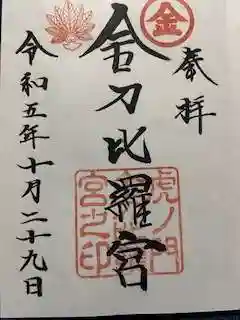 奉拝
金
金刀比羅宮
虎ノ門
宮之印
令和五年十月二十九日